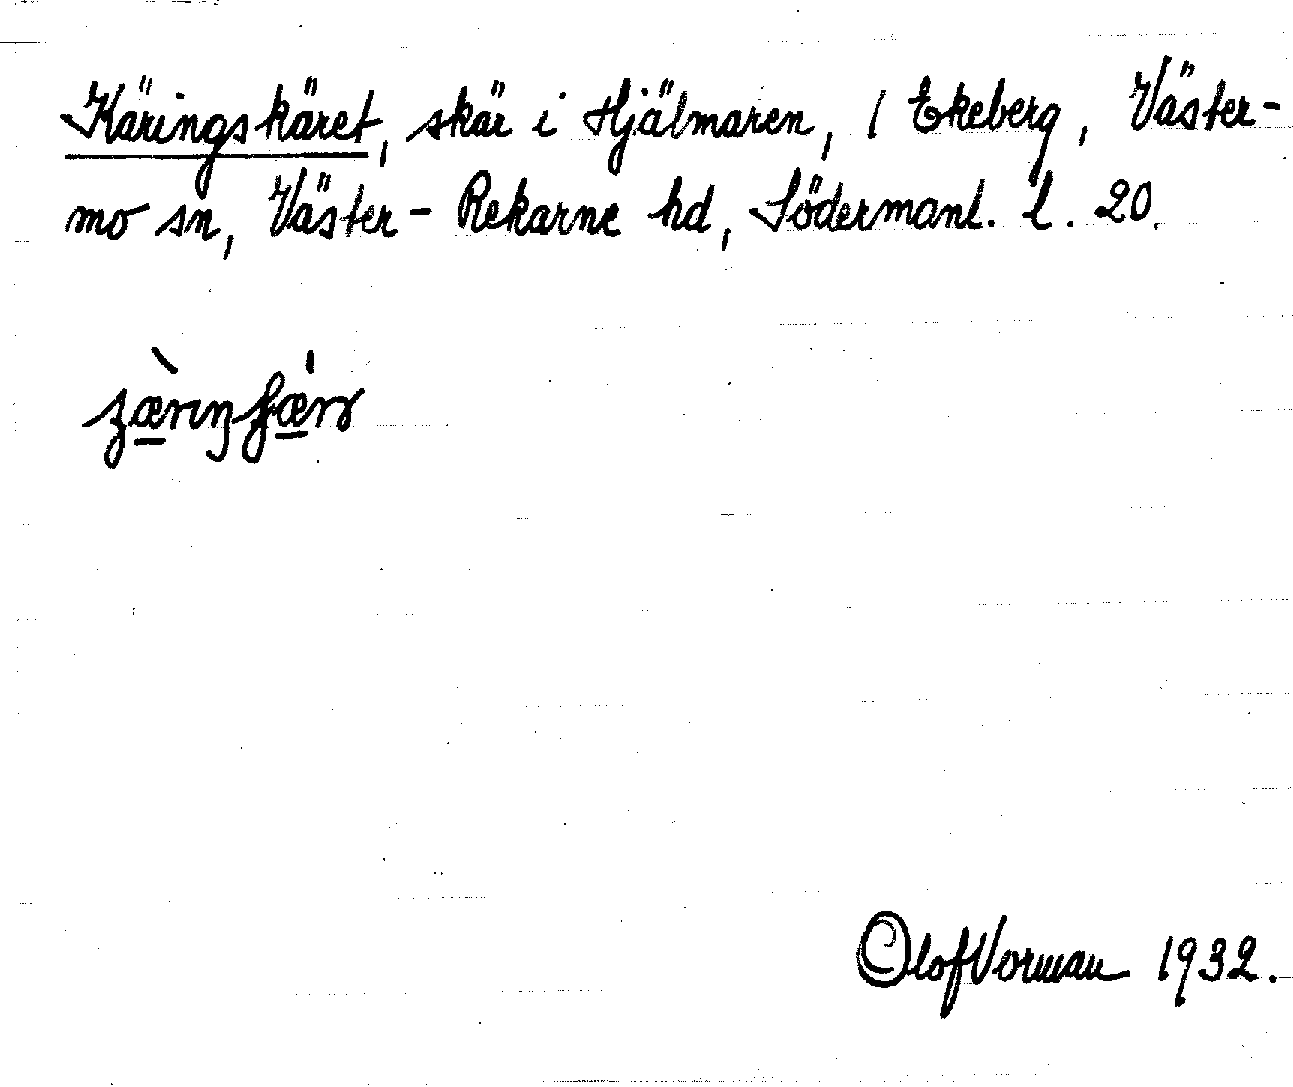 Käringskäret, skär i Hjälmaren, / Ekeberg, Väster-
mo sn, Väster-Rekarne hd, Södermanl. l. 20.
Olof Vorman 1932.